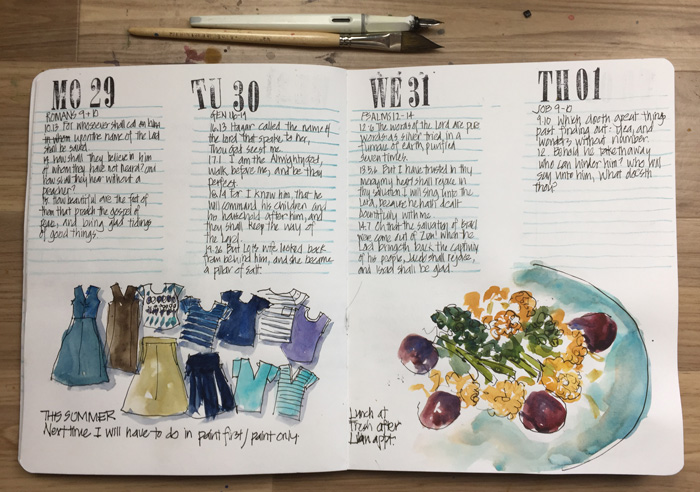 MO 29
ROMANS 9+10
10.13 For whosoever shall call on him
in whom upon the name of the Lord
shall be saved.
14. how shall they believe in him
of whom they have not heard? and
how shall they hear without a
preacher?
15. how beautiful are the feet of
them that preach the gospel of
peace, and bring glad tidings
of good things
TU 30
GEN 16-19
16.13 Hagar called the name of
the Lord that spake to her,
Thou God seest me.
17.1 I am the Almighty God,
walk before me, and be thou
perfect
18.19 For I know him, that he
will command his children and
his household after him, and
they shall keep the way of
the Lord.
19.26 But Lot's wife looked back
from behind him, and she became
a pillar of salt.
WE 31
PSALMS 12-14
12.6 The words of the Lord are pure
words: as silver tried in a
furnace of earth, purified
seven times.
13.5,6 But I have trusted in thy
mercy; my heart shall rejoice in
thy salvation. I will sing unto the
Lord, because he hath dealt
bountifully with me.
14.7 Oh that the salvation of Israel
were come out of Zion! When the
Lord bringeth back the captivity
of his people, Jacob shall rejoice,
and Israel shall be glad.
TH 01
JOB 9-10
9.10 Which doeth great things
past finding out: yea, and
wonders without number.
12. Behold he taketh away
who can hinder him? who will
say unto him, What doest
thou?
THIS SUMMER
Next time I will have to do in paint first/paint only
Lunch at
Fresh after
appt.